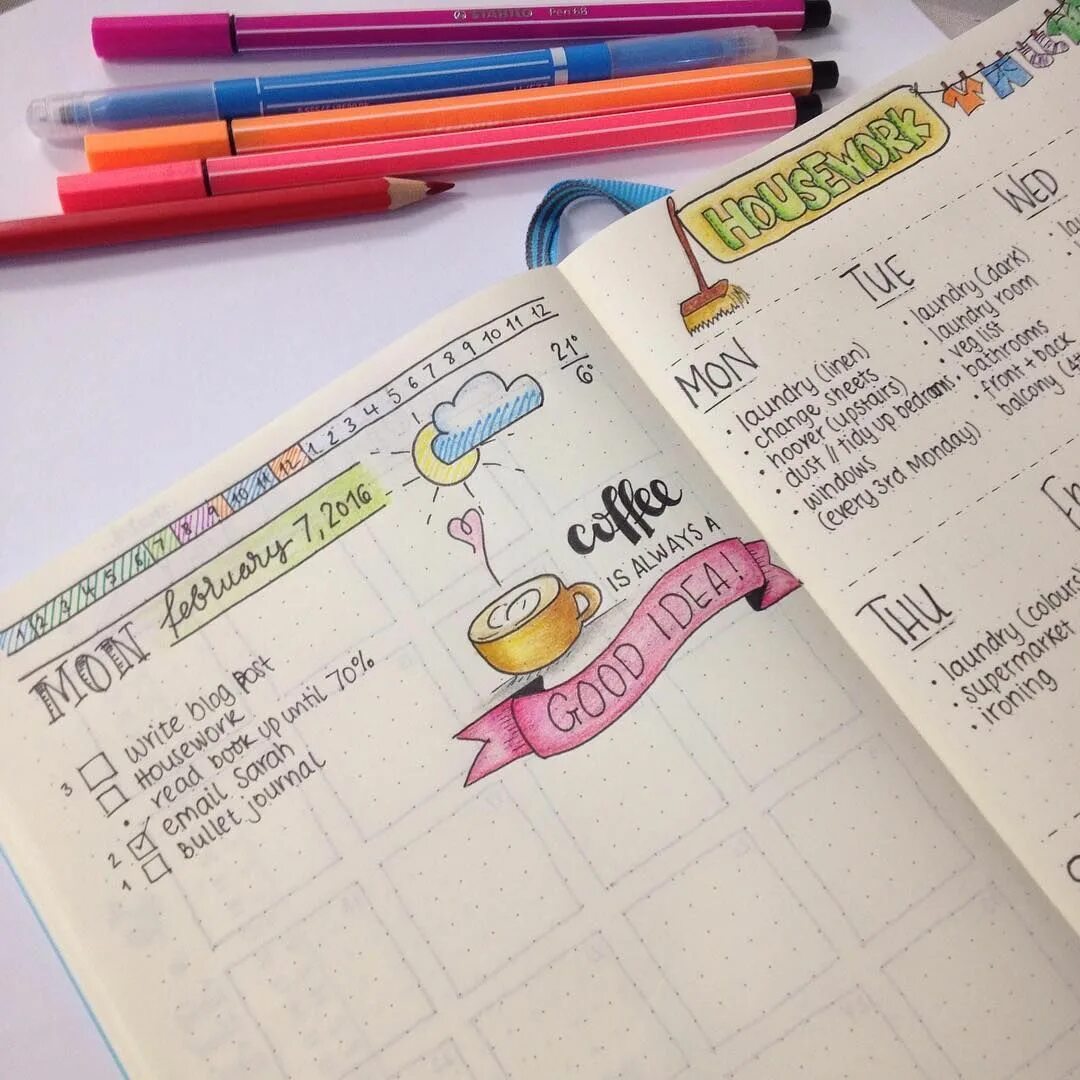 STABILO Pen 68
12 1 2 3 4 5 6 7 8 9 10 11 12 1 2 3 4 5 6 7 8 9 10 11 12
21°
6°
MON february 7, 2016
coffee
IS ALWAYS A
GOOD IDEA!
3 write blog post
Housework
• read book up until 70%
2 email Sarah
1 Bullet journal
HOUSEWORK
MON
• laundry (linen)
change sheets
• hoover (upstairs)
• dust // tidy up bedrooms
• windows
(every 3rd Monday)
TUE
• laundry (dark)
• laundry room
• veg list
• bathrooms
• front + back
balcony
WED
THU
• laundry (colours)
• supermarket
• ironing